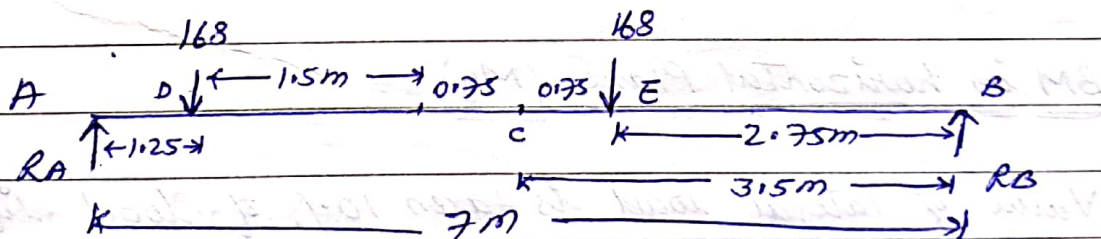 168 168
A D 1.5m 0.75 0.75 E B
1.25 C 2.75m
RA 3.5m RB
7m